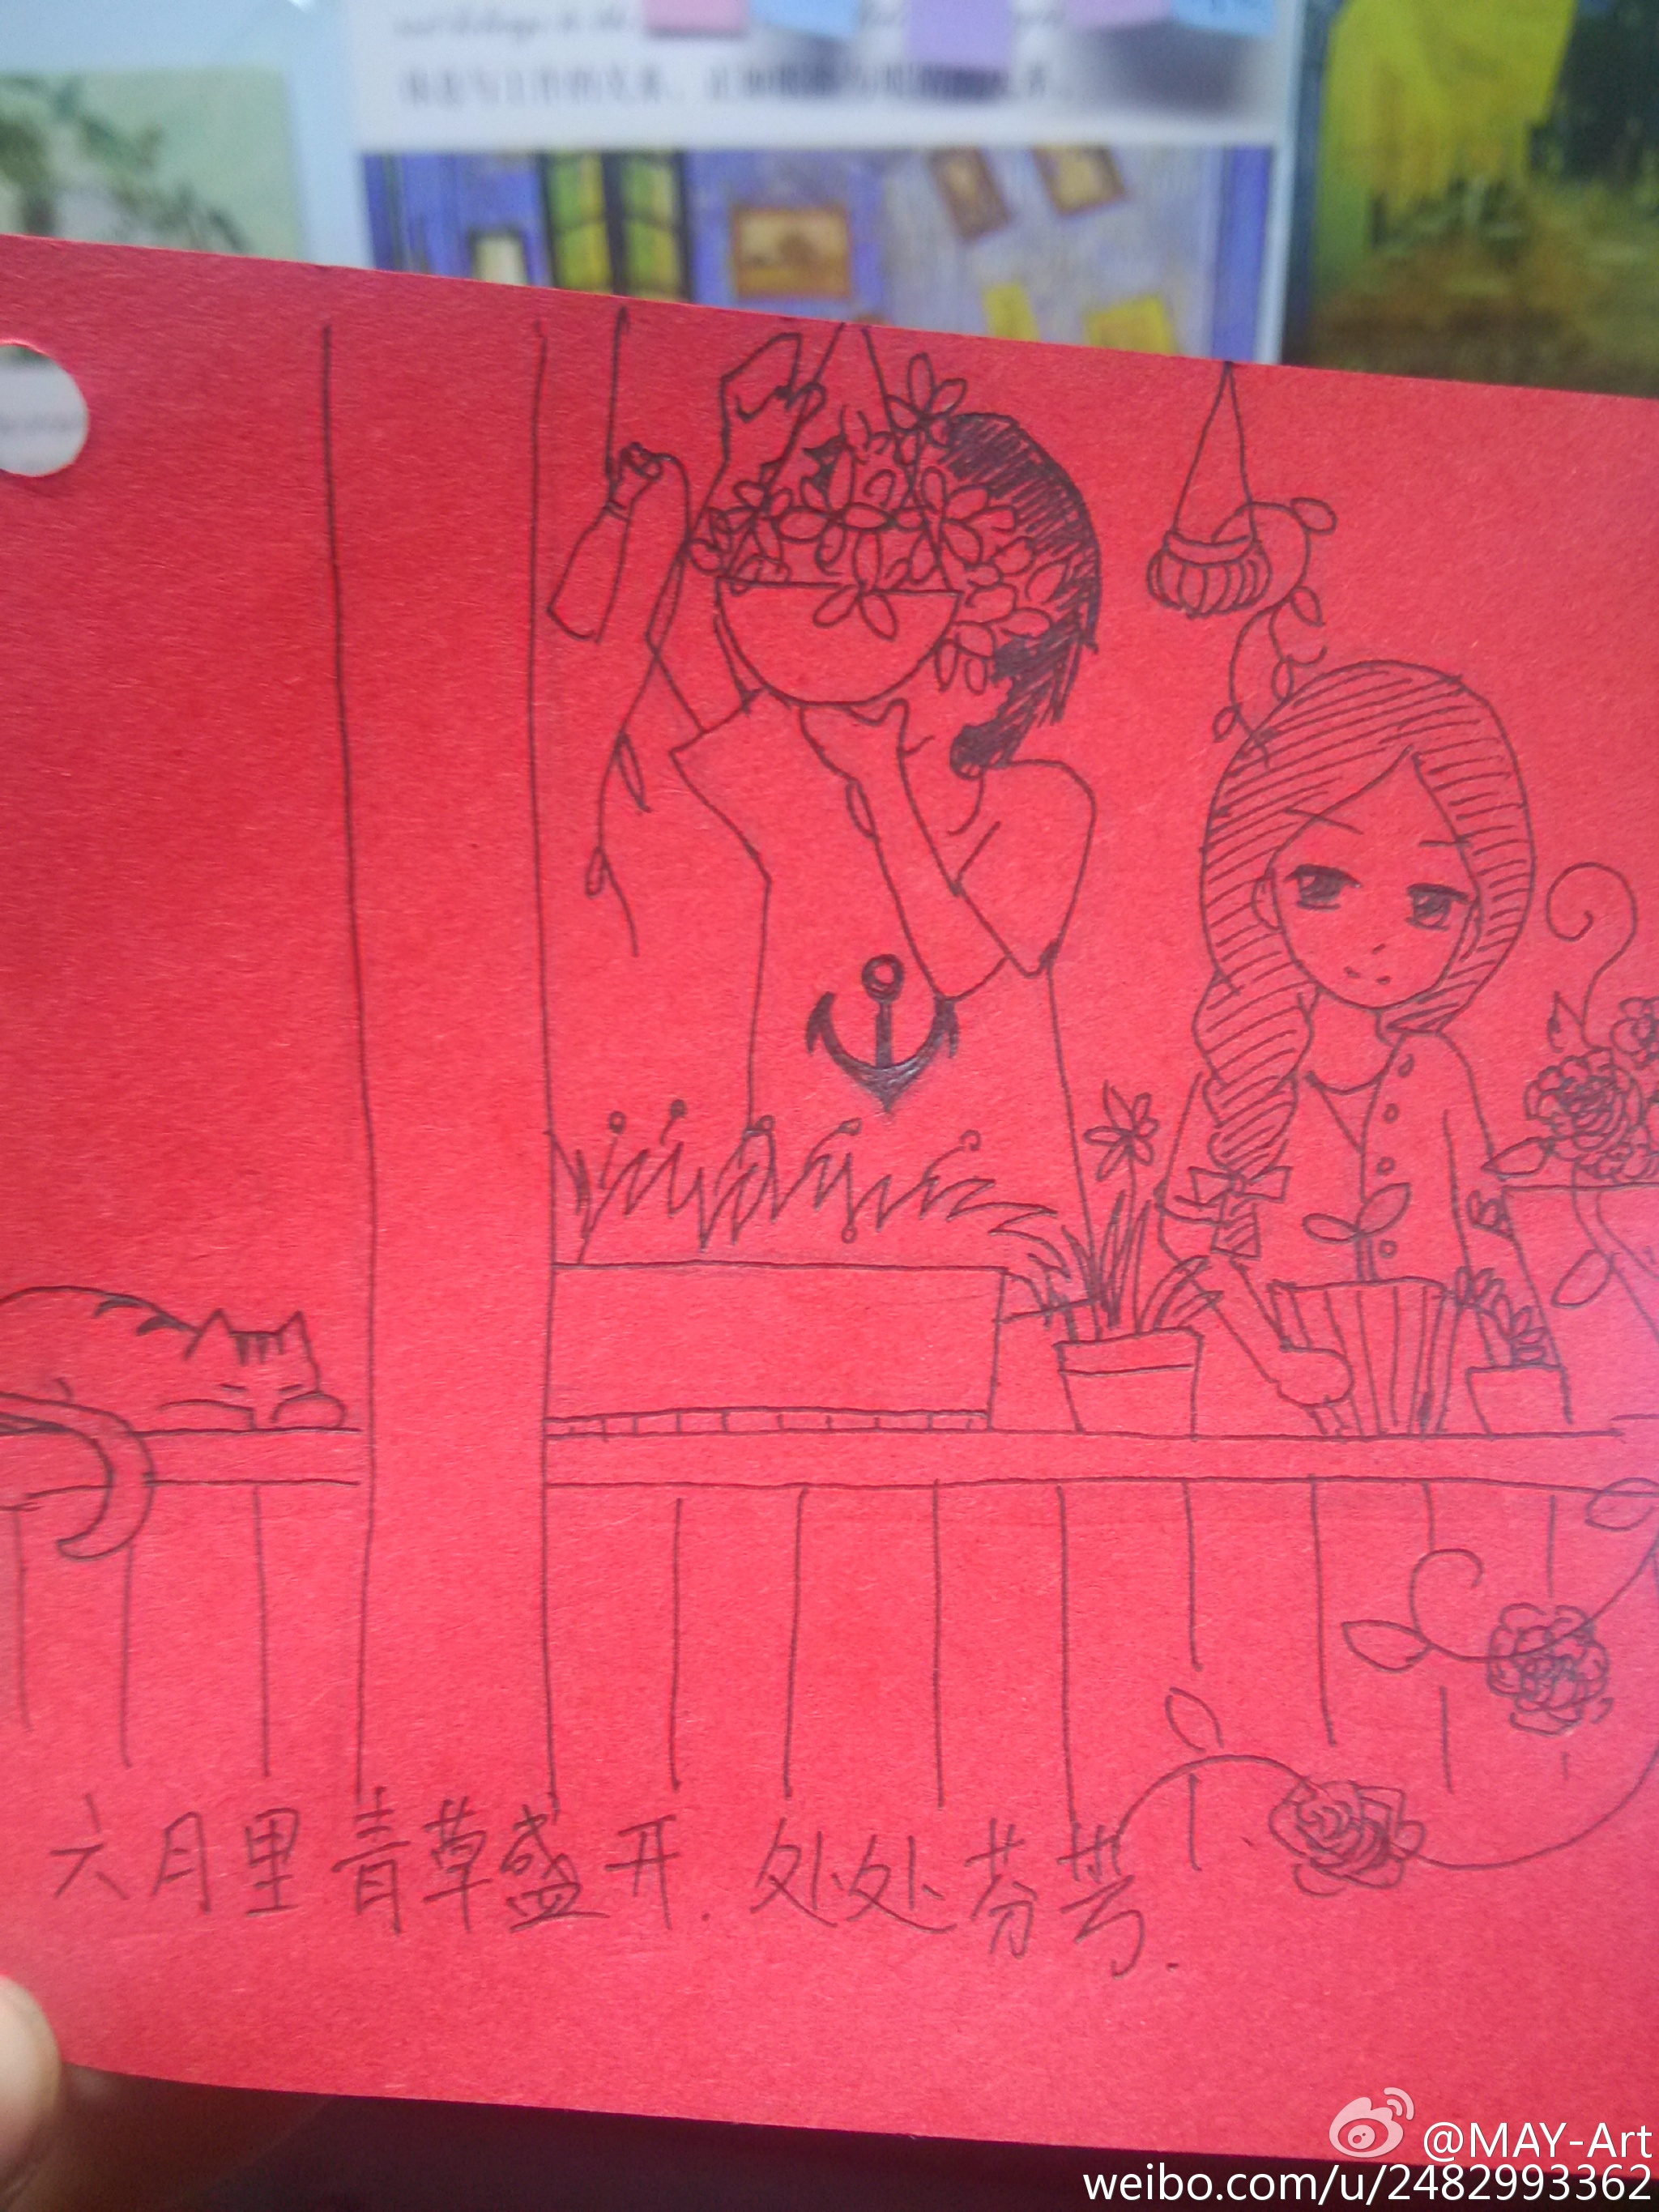 六月里青草盛开.处处芬芳.
@MAY-Art
weibo.com/u/2482993362